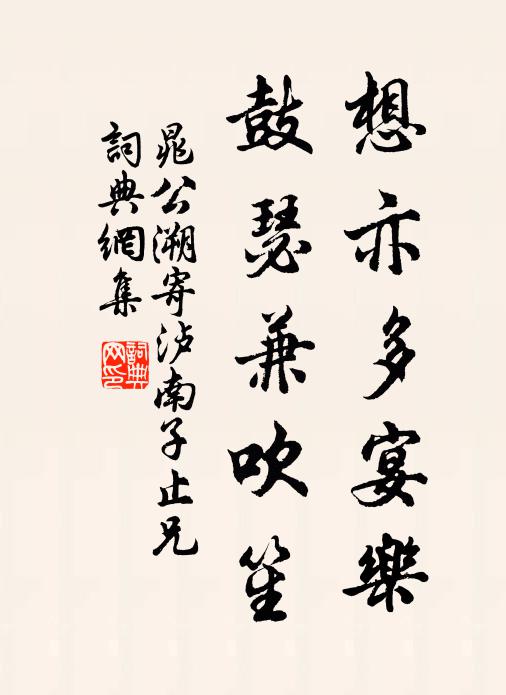 想亦多宴樂
鼓瑟兼吹笙
晁公溯寄泸南子止兄
詞典網集
詞典
网印